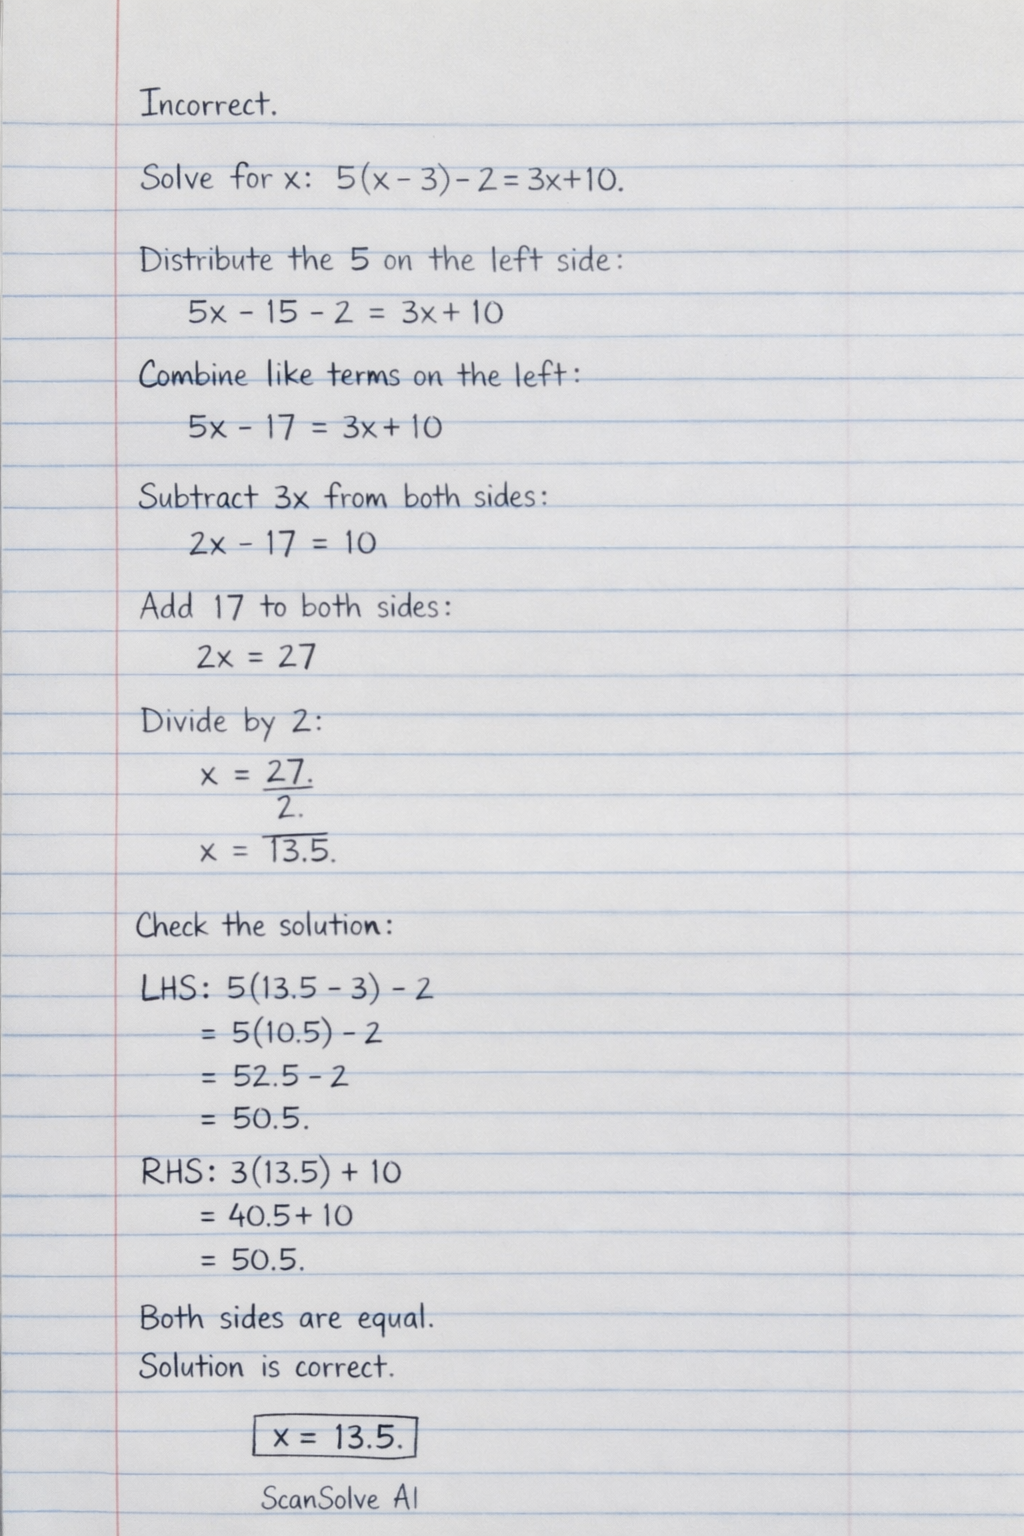 Incorrect.
Solve for x: 5(x - 3) - 2 = 3x + 10.
Distribute the 5 on the left side:
5x - 15 - 2 = 3x + 10
Combine like terms on the left:
5x - 17 = 3x + 10
Subtract 3x from both sides:
2x - 17 = 10
Add 17 to both sides:
2x = 27
Divide by 2:
x = 27.
2.
x = 13.5.
Check the solution:
LHS: 5(13.5 - 3) - 2
= 5(10.5) - 2
= 52.5 - 2
= 50.5.
RHS: 3(13.5) + 10
= 40.5 + 10
= 50.5.
Both sides are equal.
Solution is correct.
x = 13.5.
ScanSolve AI